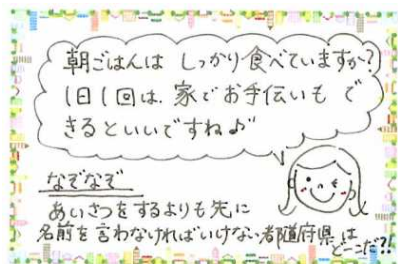 朝ごはんは しっかり食べていますか?
1日1回は、家でお手伝いも で
きるといいですね♪
なぞなぞ
あいさつをするよりも先に
名前を言わなければいけない都道府県は
どーこだ?!